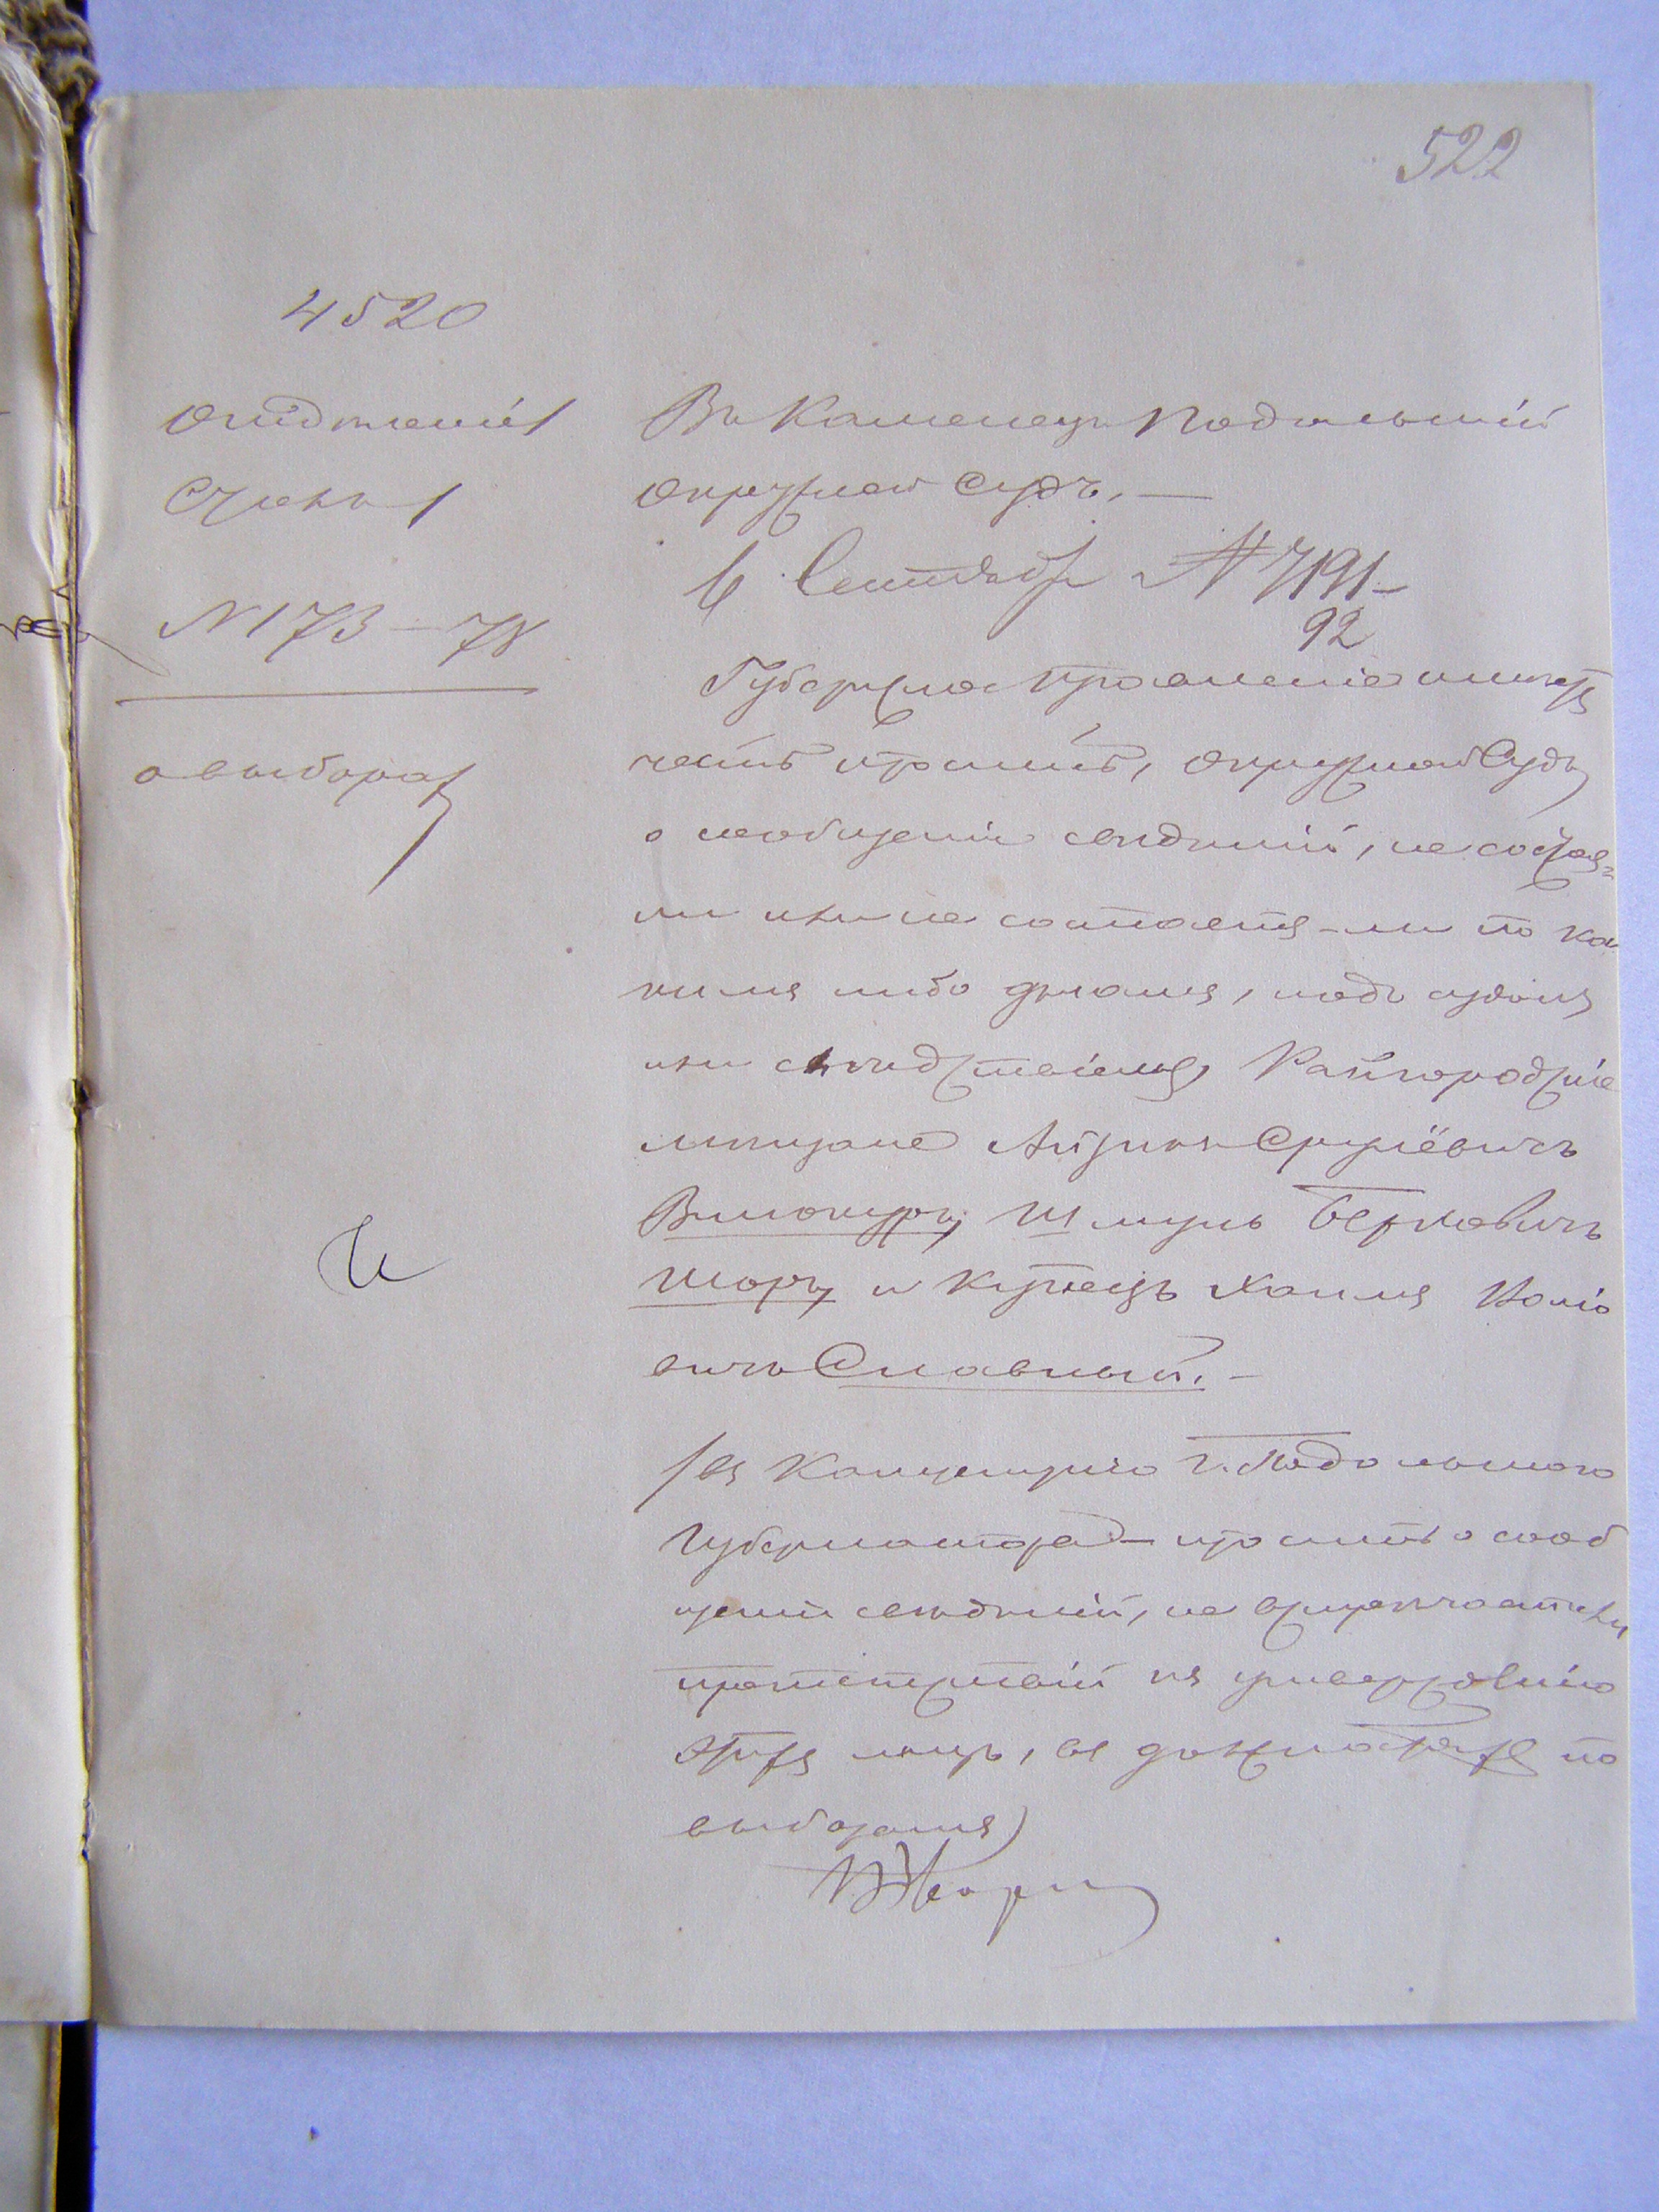 522
4520
Отдѣленіе 1
Столъ 1
№ 173-78
о выборахъ
Въ Каменецъ Подольскій
Окружной Судъ. —
6 Сентября № 7191-
92
Губернское Правленіе имѣетъ
честь просить, Окружной Судъ
о сообщеніи свѣдѣній, не состоя-
ли или не состоятъ-ли по ка
кимъ либо дѣламъ, подъ судомъ
или слѣдствіемъ, Райгородскіе
мѣщане Айзикъ Срулёвичъ
Винокуръ, Шмуль Берковичъ
Шоръ, и купецъ Хаимъ
вичъ Славный. —
/въ Канцелярію г. Подольскаго
Губернатора — просить о сооб
щеніи свѣдѣній, не встрѣчается ли
препятствій къ утвержденію
этихъ лицъ, въ должностяхъ по
выборамъ)